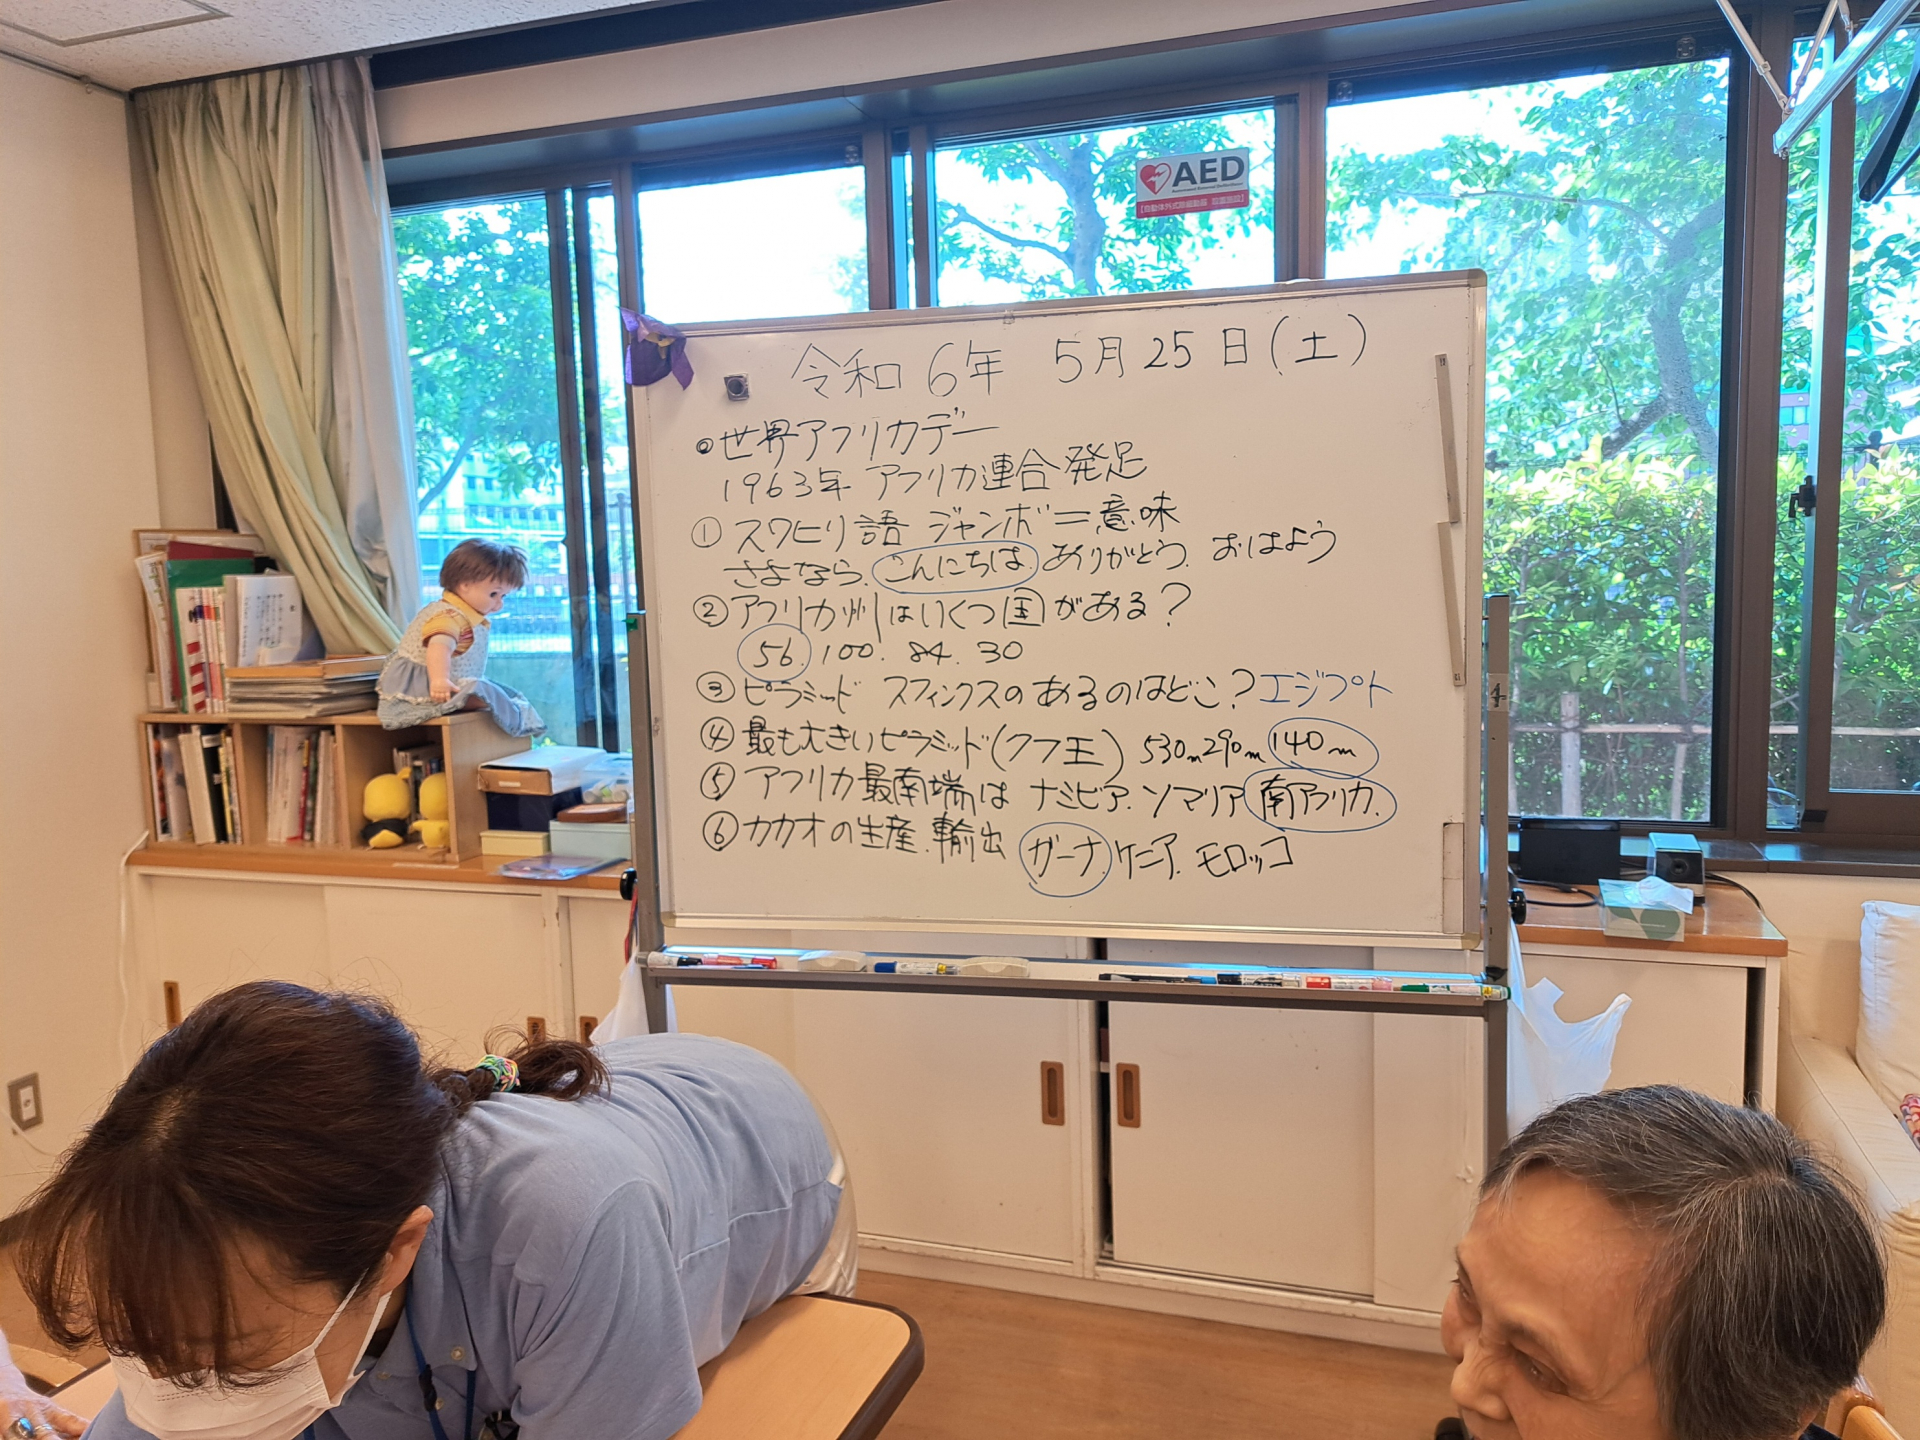 AED
令和6年 5月25日(土)
◎世界アフリカデー
1963年 アフリカ連合発足
① スワヒリ語 ジャンボ=意味
さよなら、こんにちは、ありがとう、おはよう
②アフリカ州はいくつ国がある?
56. 100. 84. 30
③ピラミッド スフィンクスのあるのはどこ?エジプト
④最も大きいピラミッド(クフ王) 530m290m 140m
⑤アフリカ最南端は ナミビア. ソマリア 南アフリカ.
⑥カカオの生産.輸出 ガーナ. ケニア. モロッコ